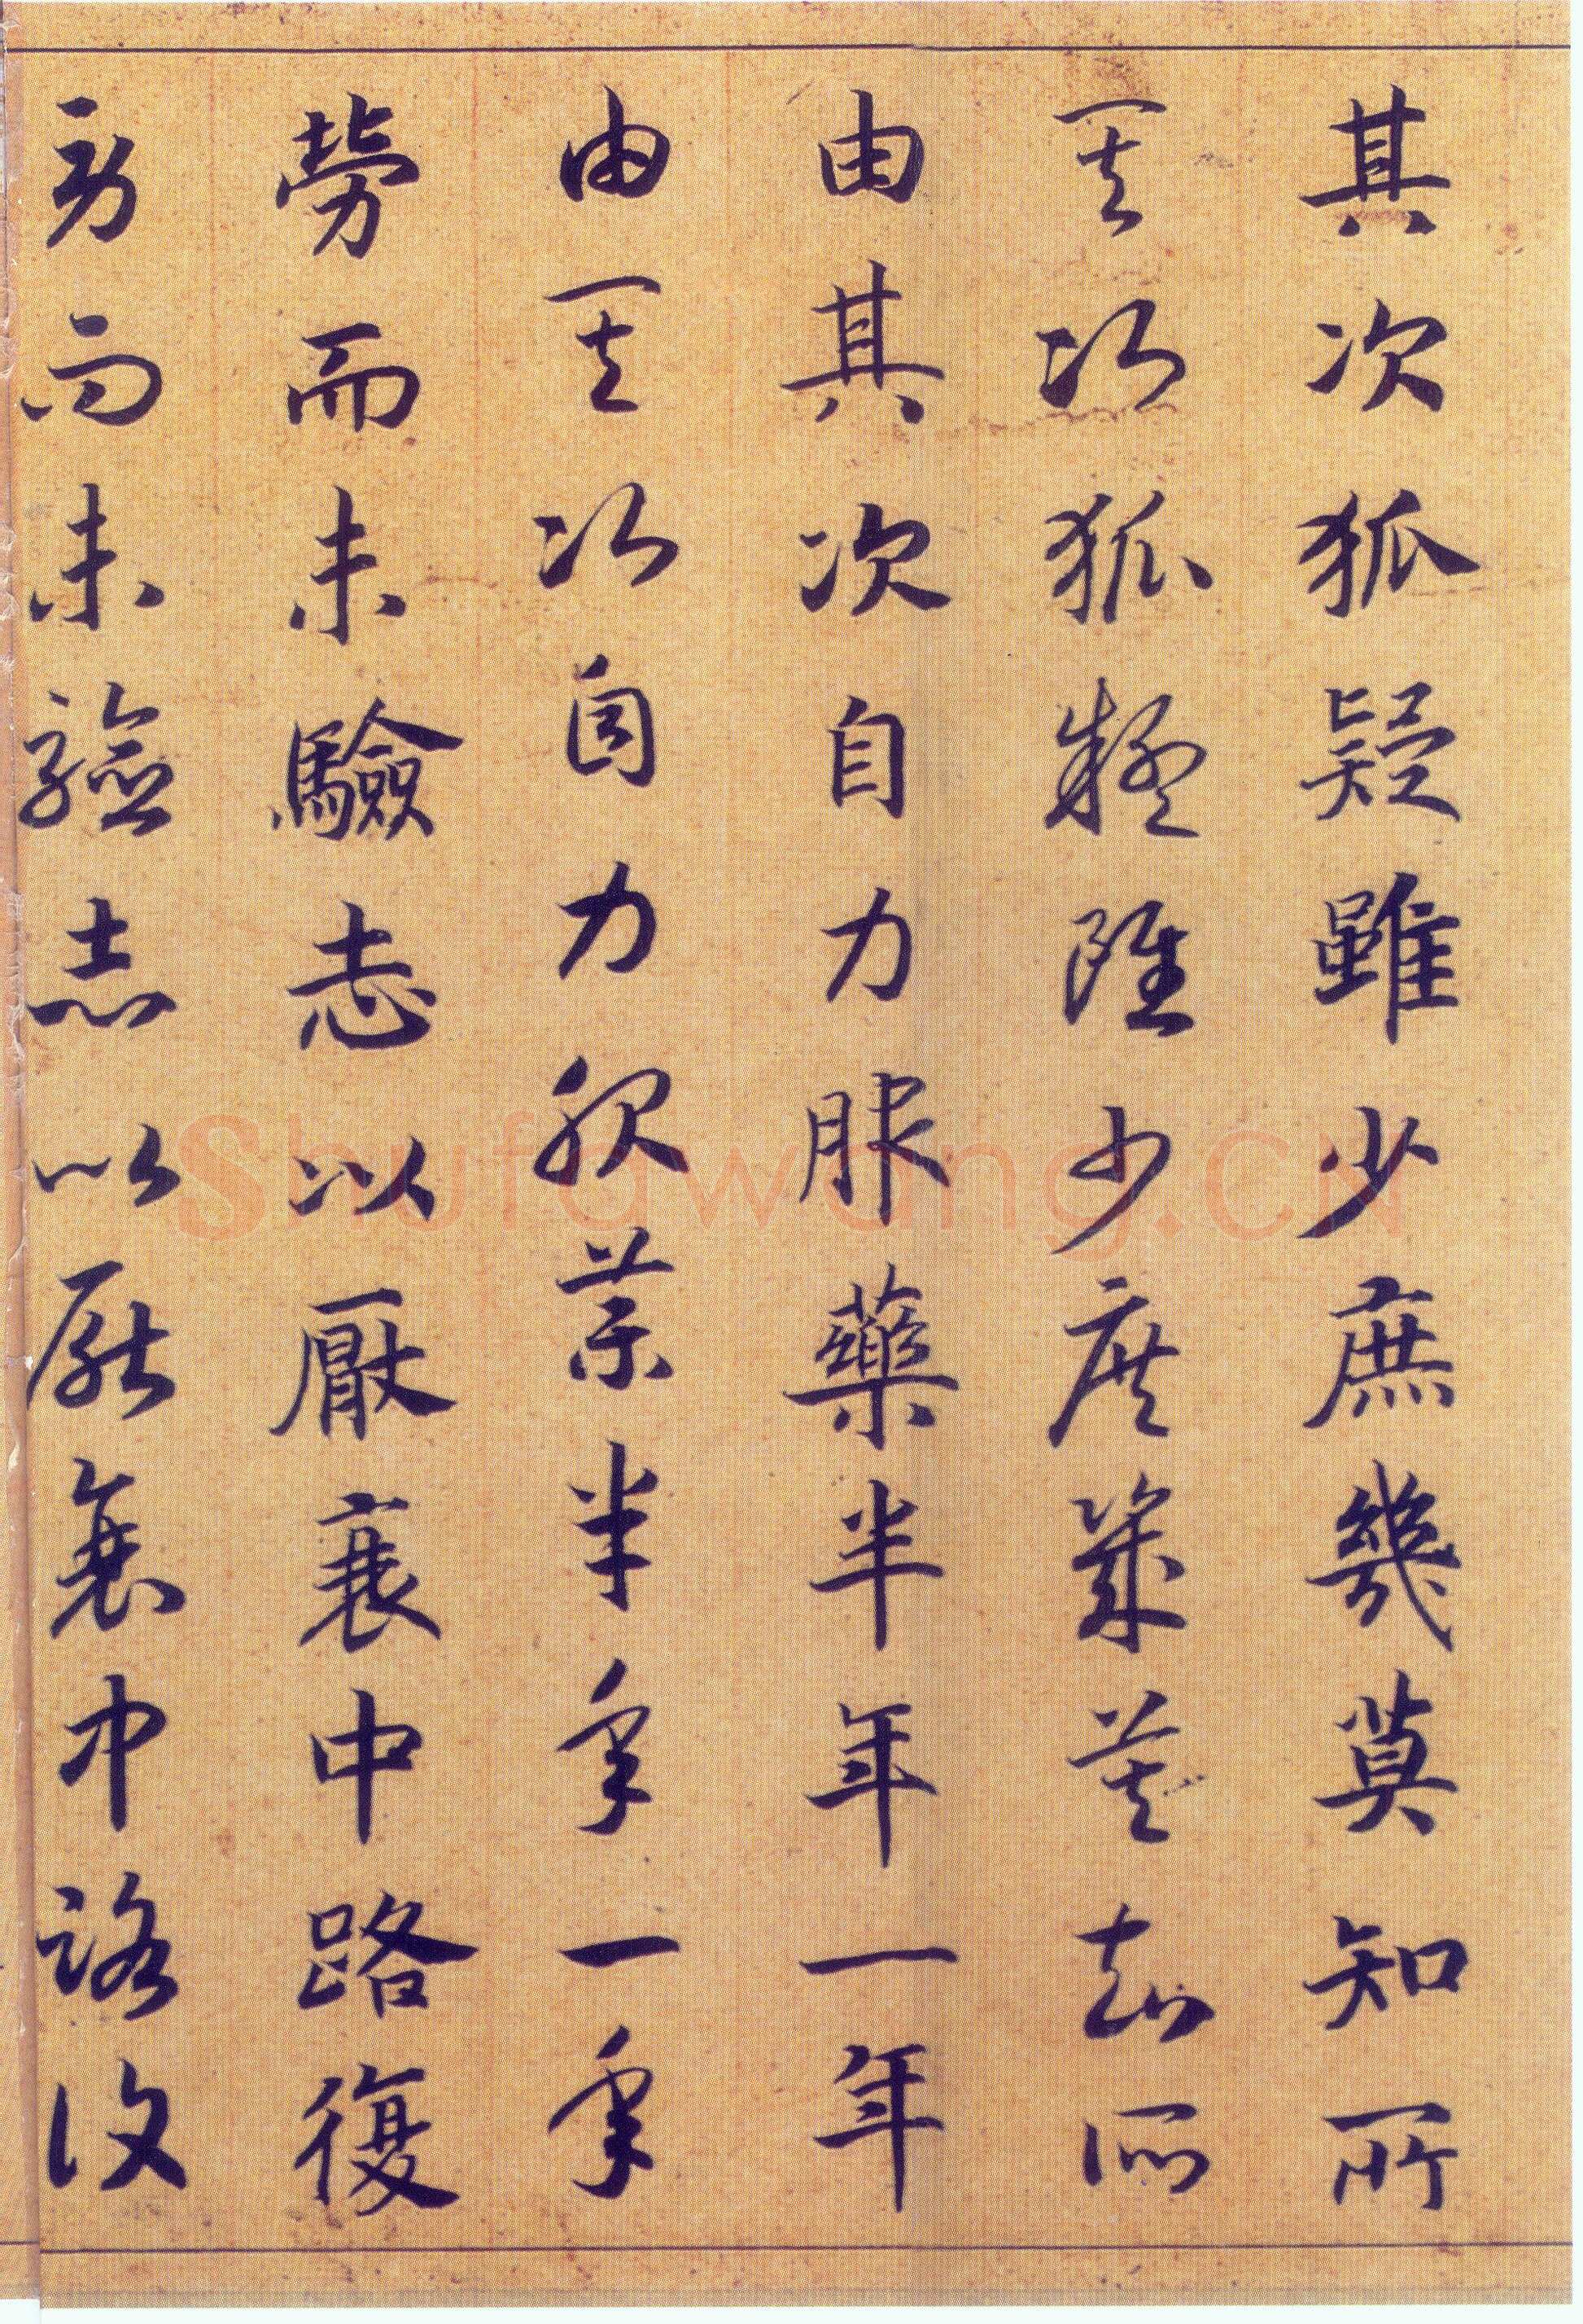 其次狐疑雖少庶幾莫知所
其次狐疑雖少庶幾莫知所
由其次自力服藥半年一年
由其次自力服藥半年一年
勞而未驗志以厭衰中路復
勞而未驗志以厭衰中路復
Shufawang.CN